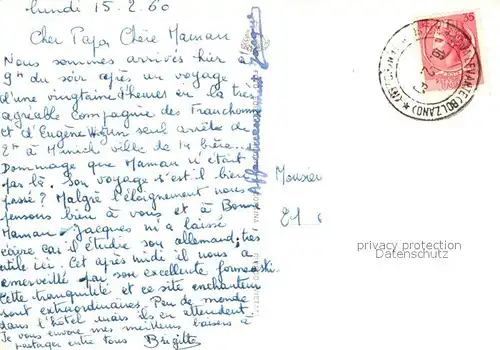 lundi 15.2.60
Cher Papa Chère Maman
Nous sommes arrivés hier à
9h du soir après un voyage
d'une vingtaine d'heures en la très
agréable Compagnie des Franchomme
et d'Eugène seul arrêt de
2h à Munich ville de la bière.
Dommage que Maman n'était
pas là. Son voyage s'est il bien
passé ? Malgré l'éloignement nous
pensons bien à vous et à Bonne
Maman. Jacques m'a laissé
écrire car il étudie son allemand, très
utile ici. Cet après midi il nous a
émerveillé par son excellente forme au ski
Cette tranquilité et ce site enchanteur
sont extraordinaires. Peu de monde
dans l'hôtel mais ils en attendent.
Je vous envoie mes meilleurs baisers à
partager entre tous Brigitte
Affectueusement Jacques
Monsieur
21
35
(BOLZANO)
privacy protection
Datenschutz